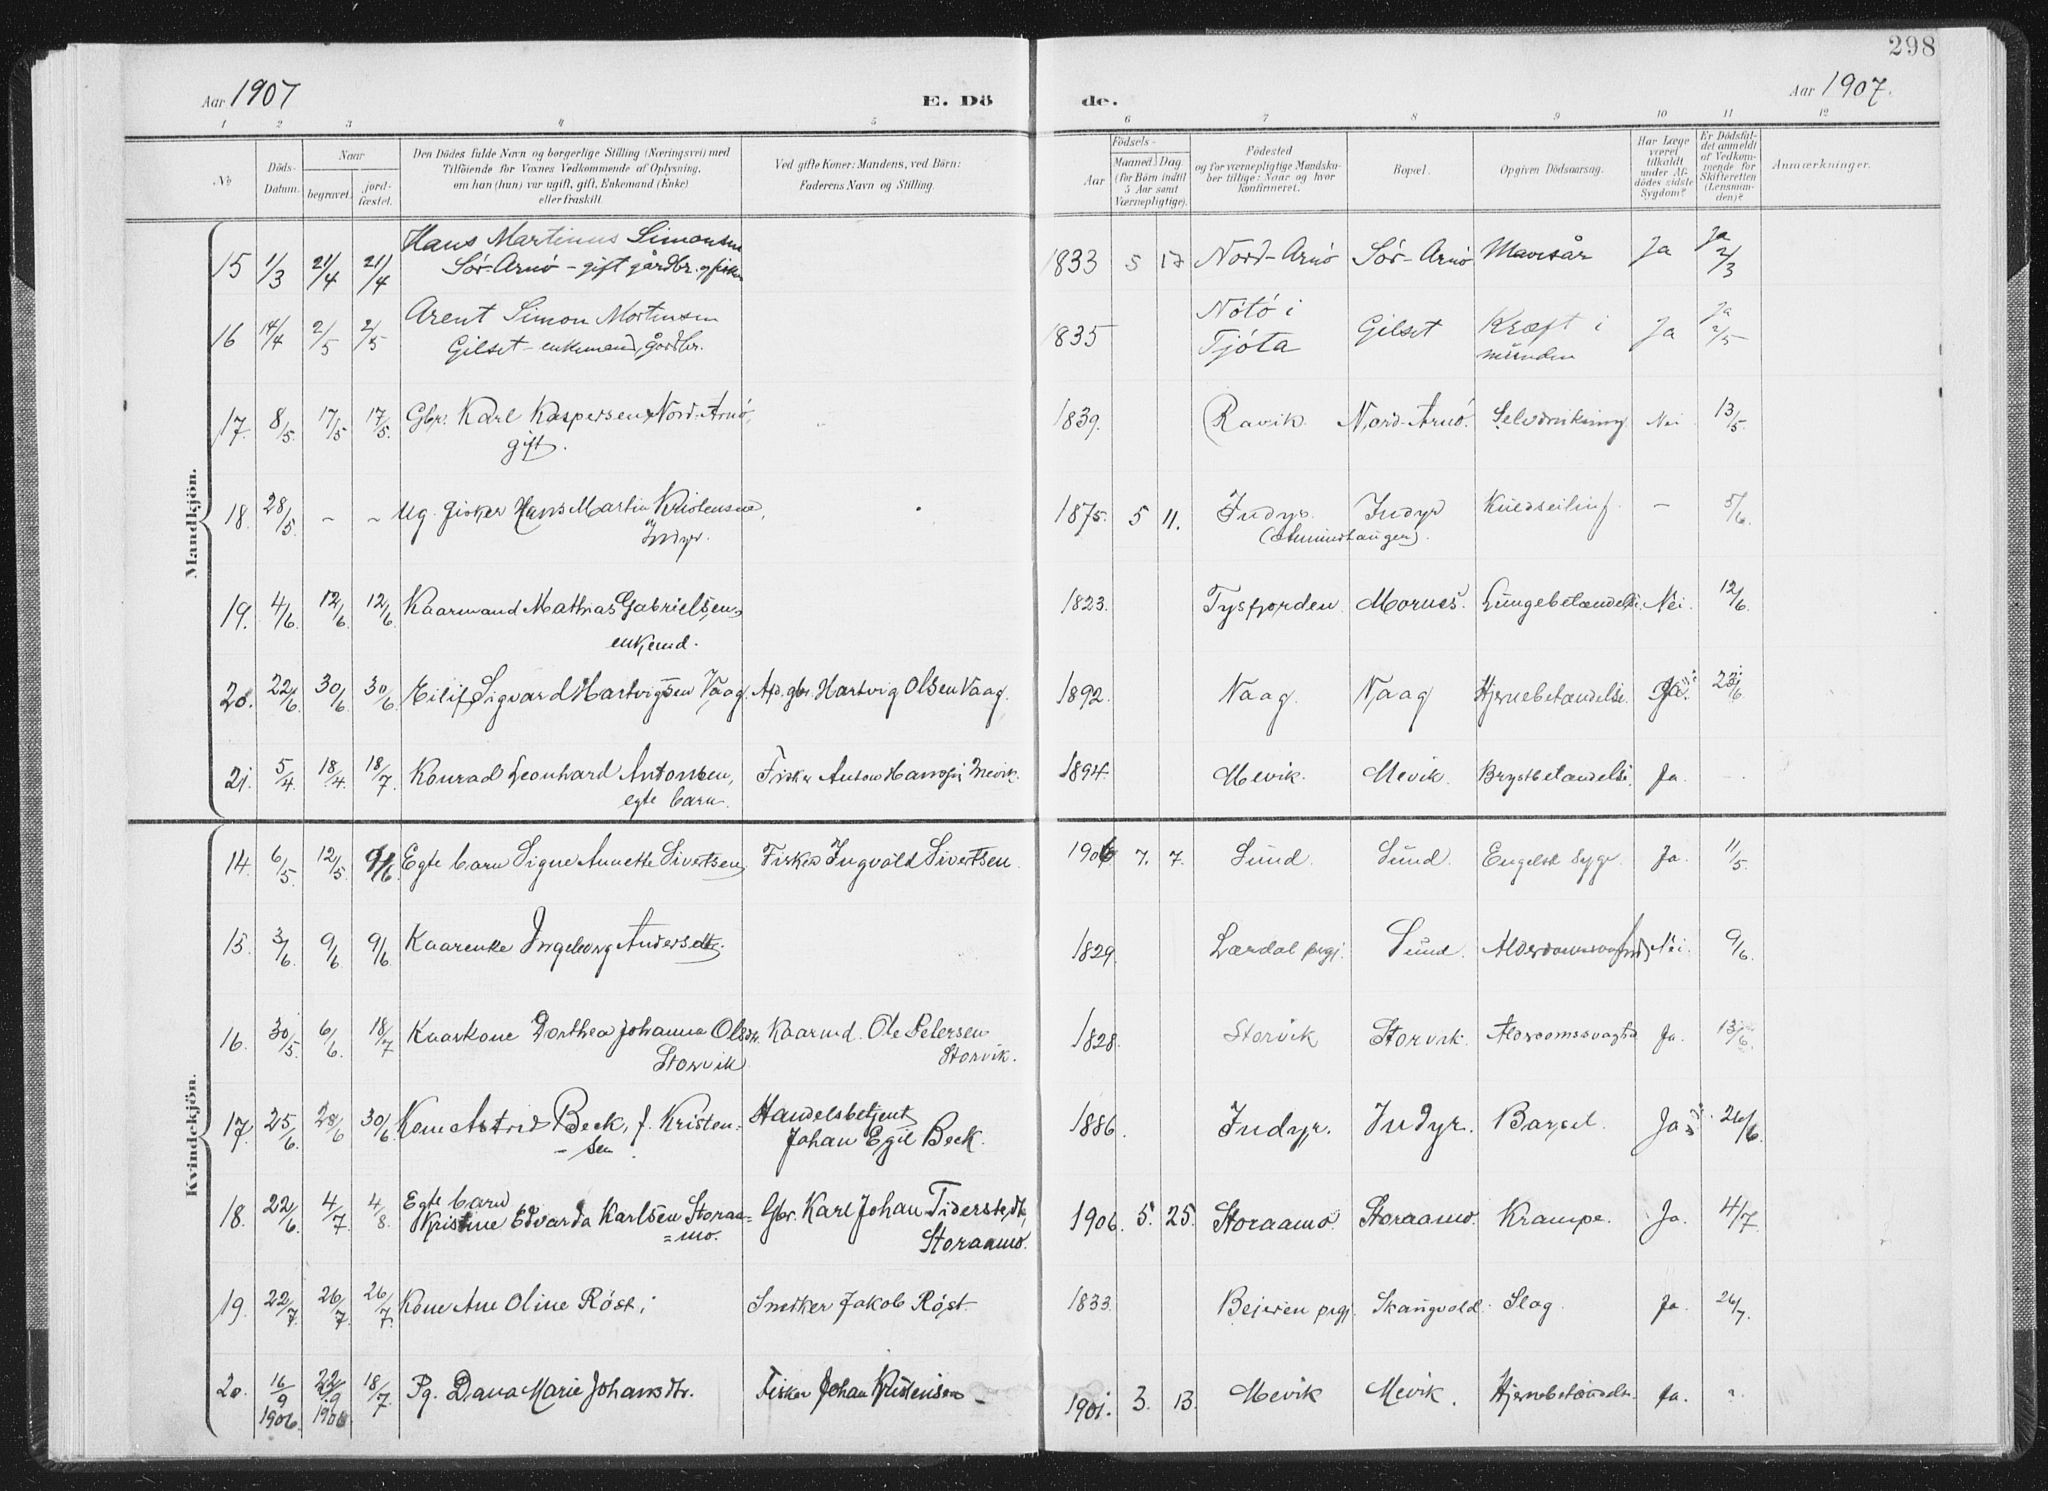 298
Aar 1907
E. Dö
de.
Aar 1907.
1 2 3 4 5 6 7 8 9 10 11 12
No
Döds-Datum.
Naar
begravet.
jord-fæstet.
Den Dödes fulde Navn og borgerlige Stilling (Næringsvei) med
Tilföiende for Voxnes Vedkommende af Oplysning,
om han (hun) var ugift, gift, Enkemand (Enke)
eller fraskilt.
Ved gifte Koner: Mandens, ved Börn:
Faderens Navn og Stilling.
Födsels-
Aar
Maaned. Dag
(for Börn indtil
5 Aar samt
Værnepligtige).
Födested
og for værnepligtige Mandskaber tillige: Naar og hvor
konfirmeret.
Bopæl.
Opgiven Dödsaarsag.
Har Læge
været
tilkaldt
under Afdödes sidste
Sygdom?
Er Dödsfaldet anmeldt
af Vedkommende for
Skifteretten
(Lensmanden)?
Anmærkninger.
Mandkjön.
15 1/3 21/4 21/4 Hans Martinus Simonsen
Sör-Arnö - gift gårdbr. og fisker
1833 5 17 Nord-Arnö Sör-Arnö Mavesår Ja Ja 2/3
16 14/4 2/5 2/5 Arent Simon Mortensen
Gilset - enkemand, gårdbr.
1835 Nötö i Tjöta Gilset Kræft i munden Ja Ja 2/5
17. 8/5 17/5 17/5. Gbr. Karl Kaspersen Nord-Arnö,
gift.
1839. Ravik. Nord-Arnö. Selvdrukning. Nei 13/5.
18. 28/5. - - Ug. fisker Hans Martin Kristensen,
Indyr.
1875. 5 11. Indyr Indyr Kuldseiling. - 5/6.
19. 4/6. 12/6. 12/6. Kaarmand Mathias Gabrielsen,
enkemd.
1823. Tysfjorden. Mornes. Lungebetændelse. Nei. 12/6.
20. 22/6. 30/6. 30/6. Eilif Sigvard Hartvigsen Vaag. Afd. gbr. Hartvig Olsen Vaag.
1892. Vaag. Vaag Hjernebetændelse. Ja. 23/6
21. 5/4. 18/4. 18/7. Konrad Leonhard Antonsen,
egte barn.
Fisker Anton Mevik.
1894. Mevik. Mevik. Brystbetændelse. Ja.
Kvindekjön.
14. 6/5. 12/5. 9/6. Egte barn Signe Annette Sivertsen, Fisker Ingvald Sivertsen.
1906 7. 7. Sund. Sund. Engelsk syge. Ja. 11/5.
15. 3/6. 9/6. 9/6. Kaarenke Ingeborg Andersdtr.
1829. Lærdal prgj. Sund. Nei. 9/6.
16. 30/5. 6/6. 18/7 Kaarkone Dorthea Johanna Olsdtr.
Storvik
Kaarmd. Ole Petersen
Storvik.
1828. Storvik Storvik. Alderdomssvaghed Ja. 13/6.
17. 25/6. 28/6 30/6. Kone Astrid Beck, f. Kristen-
sen.
Handelsbetjent
Johan Egil Beck.
1886. Indyr. Indyr. Barsel. Ja. 26/6.
18. 22/6. 4/7. 4/8. Egte barn
Kristine Edvarda Karlsen Storaa=
=mo.
Gbr. Karl Johan Tiderstedt,
Storaamo.
1906. 5. 25. Storaamo. Storaamo. Krampe. Ja. 4/7.
19. 22/7. 26/7. 26/7. Kone Ane Oline Röst; Jakob Röst
1833. Beieren prgj. Skaugvold. Slag. Ja. 26/7.
20. 16/9 1906. 22/9 1906 18/7. Pg. Dana Marie Johansdtr. Fisker Johan Kristensen
1901. 3. 13. Mevik Mevik. Hjernebetændelse Ja.